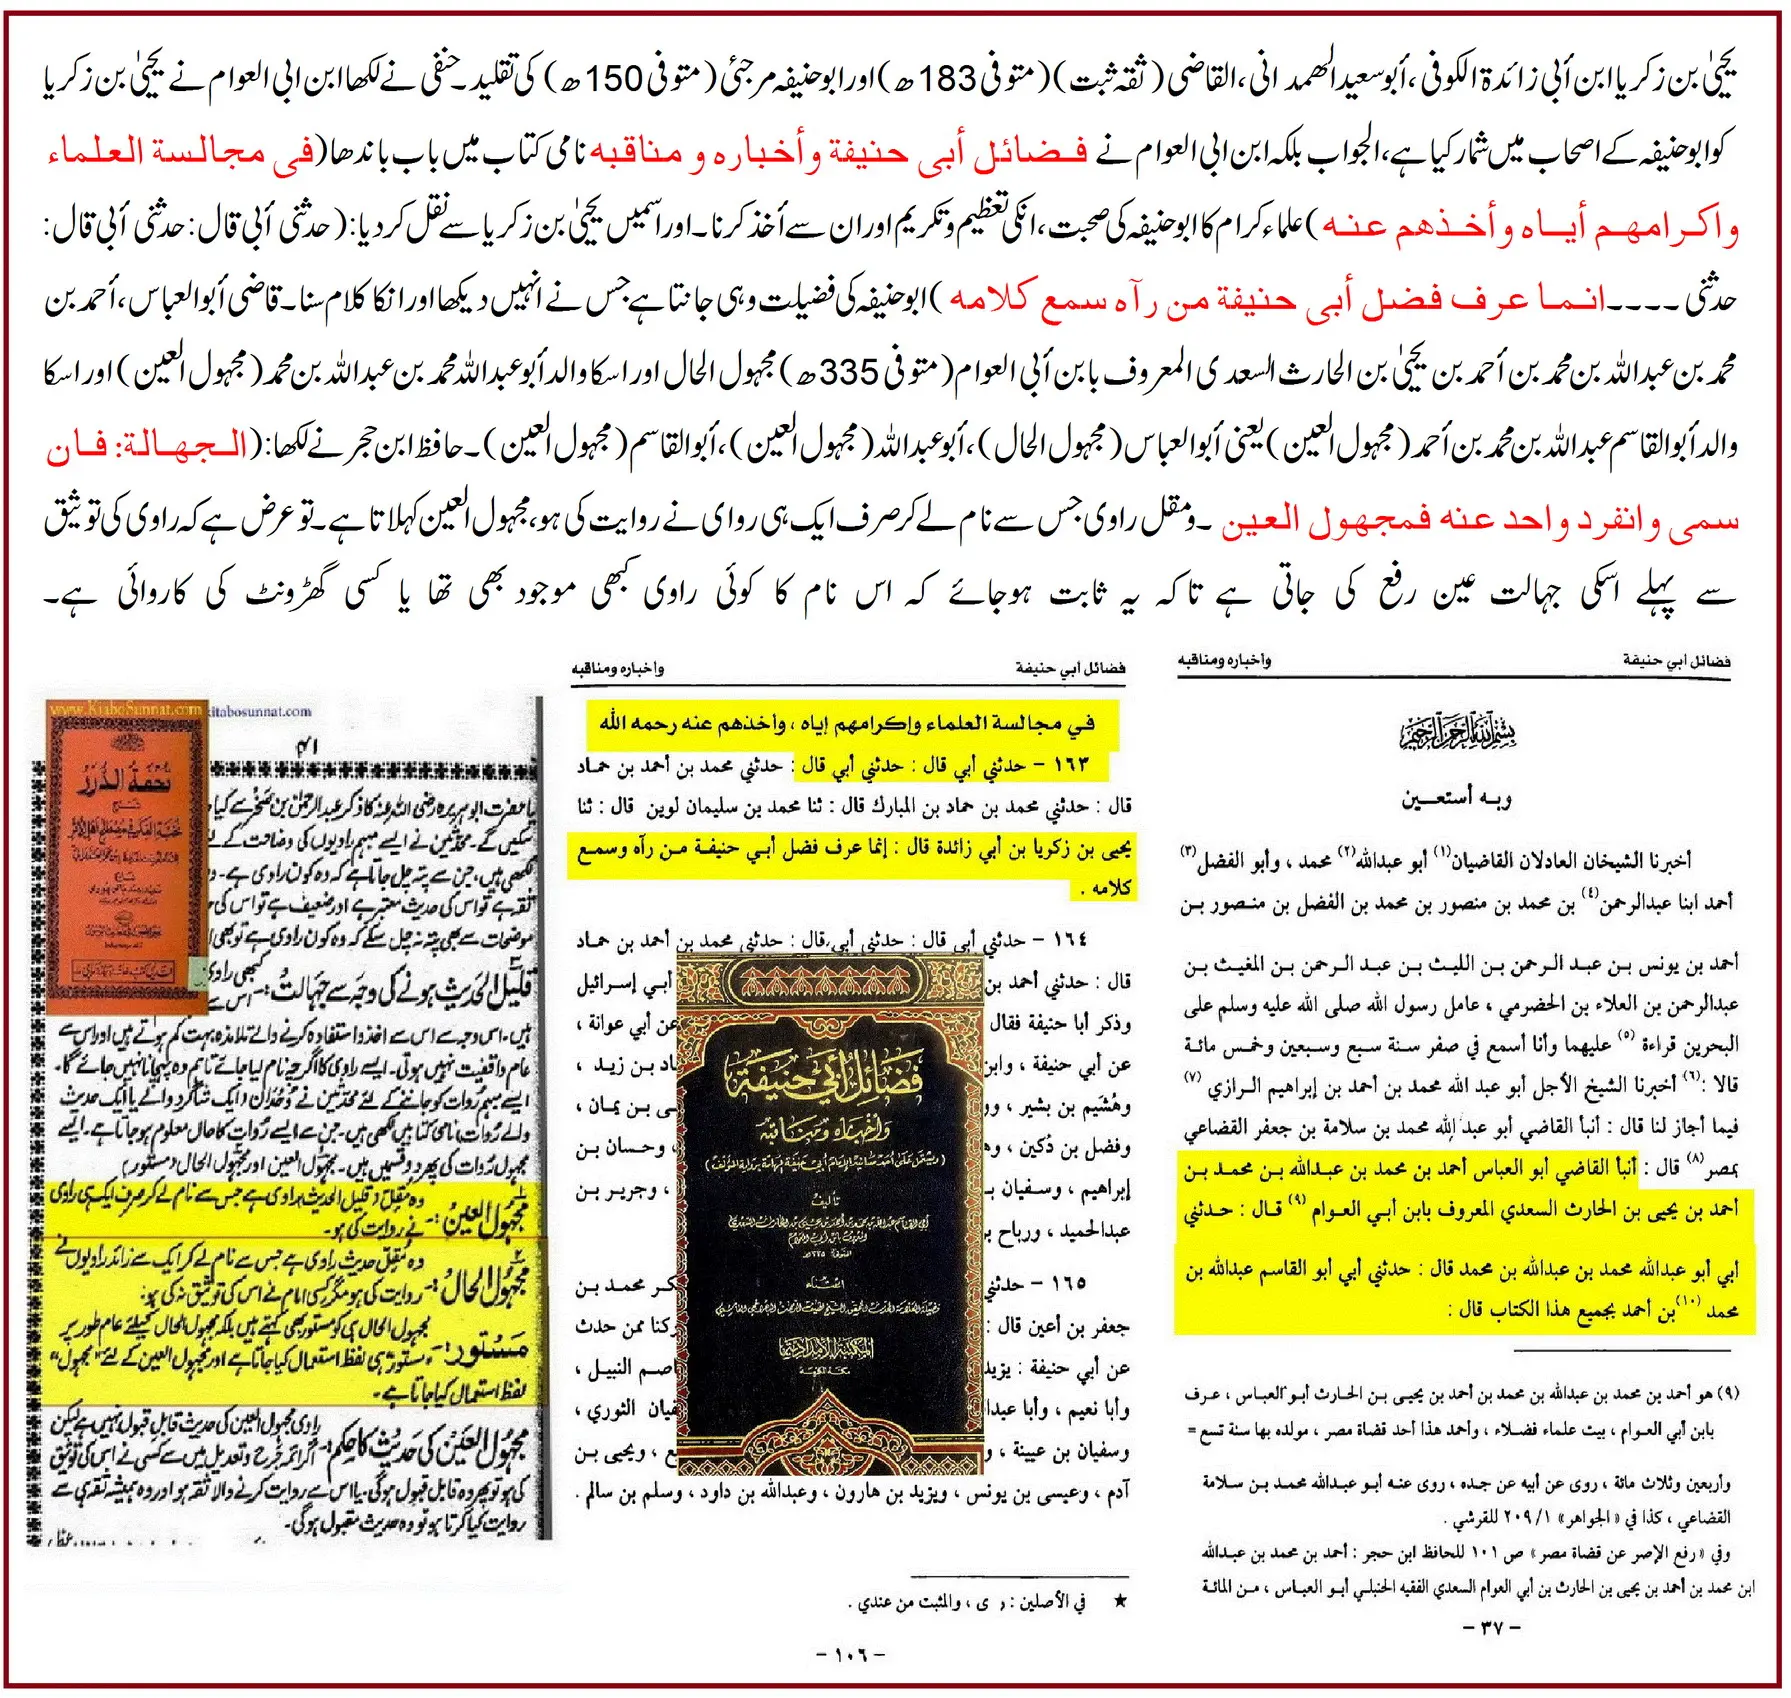 یحییٰ بن زکریا ابن أبی زائدة الکوفی، أبو سعید الھمدانی، القاضی (ثقہ ثبت) (متوفی 183ھ) اور ابوحنیفہ مرجئی (متوفی 150ھ) کی تقلید۔ حنفی نے لکھا ابن ابی العوام نے یحییٰ بن زکریا
کو ابوحنیفہ کے اصحاب میں شمار کیا ہے، الجواب بلکہ ابن ابی العوام نے فضائل أبی حنیفة وأخباره و مناقبه نامی کتاب میں باب باندھا (فی مجالسة العلماء
واکرامهم أیاه وأخذهم عنه) علماء کرام کا ابوحنیفہ کی صحبت، انکی تعظیم و تکریم اور ان سے أخذ کرنا۔ اور اسمیں یحییٰ بن زکریا سے نقل کر دیا: (حدثنی أبی قال: حدثنی أبی قال:
حدثنی ۔۔۔۔ انما عرف فضل أبی حنیفة من رآه سمع کلامه) ابوحنیفہ کی فضیلت وہی جانتا ہے جس نے انہیں دیکھا اور انکا کلام سنا۔ قاضی أبو العباس، أحمد بن
محمد بن عبداللہ بن محمد بن أحمد بن یحییٰ بن الحارث السعدی المعروف بابن أبی العوام (متوفی 335ھ) مجہول الحال اور اسکا والد أبو عبداللہ محمد بن عبداللہ بن محمد (مجہول العین) اور اسکا
والد أبو القاسم عبداللہ بن محمد بن أحمد (مجہول العین) یعنی أبو العباس (مجہول الحال)، أبو عبداللہ (مجہول العین)، أبو القاسم (مجہول العین)۔ حافظ ابن حجر نے لکھا: (الجهالة: فان
سمی وانفرد واحد عنه فمجهول العین ۔ ومقل راوی جس سے نام لے کر صرف ایک ہی روای نے روایت کی ہو، مجہول العین کہلاتا ہے۔ تو عرض ہے کہ راوی کی توثیق
سے پہلے اسکی جہالت عین رفع کی جاتی ہے تاکہ یہ ثابت ہوجائے کہ اس نام کا کوئی راوی کبھی موجود بھی تھا یا کسی گھڑونٹ کی کاروائی ہے۔
فضائل أبي حنيفة وأخباره ومناقبه
بسم الله الرحمن الرحيم
وبه أستعين
أخبرنا الشيخان العادلان القاضيان(١) أبو عبدالله(٢) محمد ، وأبو الفضل(٣)
أحمد ابنا عبدالرحمن(٤) بن محمد بن منصور بن محمد بن الفضل بن منصور بن
أحمد بن يونس بن عبد الرحمن بن الليث بن عبد الرحمن بن المغيث بن
عبدالرحمن بن العلاء بن الحضرمي ، عامل رسول الله صلى الله عليه وسلم على
البحرين قراءة (٥) عليهما وأنا أسمع في صفر سنة سبع وسبعين وخمس مائة
قالا :(٦) أخبرنا الشيخ الأجل أبو عبد الله محمد بن أحمد بن إبراهيم الرازي (٧)
فيما أجاز لنا قال : أنبأ القاضي أبو عبد الله محمد بن سلامة بن جعفر القضاعي
بمصر(٨) قال : أنبأ القاضي أبو العباس أحمد بن محمد بن عبدالله بن محمد بن
أحمد بن يحيى بن الحارث السعدي المعروف بابن أبي العوام (٩) قال : حدثني
أبي أبو عبدالله محمد بن عبدالله بن محمد قال : حدثني أبي أبو القاسم عبدالله بن
محمد (١٠)بن أحمد بجميع هذا الكتاب قال :
(٩) هو أحمد بن محمد بن عبدالله بن محمد بن أحمد بن يحيى بن الحارث أبو العباس ، عرف
بابن أبي العوام ، بيت علماء فضلاء ، وأحمد هذا أحد قضاة مصر ، مولده بها سنة تسع =
وأربعين وثلاث مائة ، روى عن أبيه عن جده ، روى عنه أبو عبدالله محمد بن سلامة
القضاعي ، كذا في «الجواهر» ٢٠٩/١ للقرشي .
وفي «رفع الإصر عن قضاة مصر» ص ١٠١ للحافظ ابن حجر : أحمد بن محمد بن عبدالله
ابن محمد بن أحمد بن يحيى بن الحارث بن أبي العوام السعدي الفقيه الحنبلي أبو العباس ، من المائة
– ٣٧ –
فضائل أبي حنيفة وأخباره ومناقبه
في مجالسة العلماء وإكرامهم إياه ، وأخذهم عنه رحمه الله
١٦٣ – حدثني أبي قال : حدثني أبي قال : حدثني محمد بن أحمد بن حماد
قال : حدثني محمد بن حماد بن المبارك قال : ثنا محمد بن سليمان لوين قال : ثنا
يحيى بن زكريا بن أبي زائدة قال : إنما عرف فضل أبي حنيفة من رآه وسمع
كلامه .
١٦٤ – حدثني أبي قال : حدثني أبي قال : حدثني محمد بن أحمد بن حماد
قال : حدثني أحمد بن أبي إسرائيل
وذكر أبا حنيفة فقال عن أبي عوانة ،
عن أبي حنيفة ، وابن اد بن زيد ،
وهُشَيم بن بشير ، وو ى بن يمان ،
وفضل بن دُكين ، وه ، وحسان بن
إبراهيم ، وسفيان ب ، وجرير بن
عبدالحميد ، ورباح ب
١٦٥ – حدثني كر محمد بن
جعفر بن أعين قال : ركنا ممن حدث
عن أبي حنيفة : يزيد اصم النبيل ،
وأبا نعيم ، وأبا عبدا فيان الثوري ،
وسفيان بن عيينة ، و ع ، ويحيى بن
آدم ، وعيسى بن يونس ، ويزيد بن هارون ، وعبدالله بن داود ، وسلم بن سالم .
★ في الأصلين : ر ى ، والمثبت من عندي .
– ١٠٦ –
فضائل أبي حنيفة
وأخباره ومناقبه
تأليف
المكتبة الإمدادية
مكة المكرمة
www.KitaboSunnat.com
kitabosunnat.com
٤١
تحفة الدرر
شرح
یا حضرت ابوہریرہ رضی اللہ عنہ کا ذکر عبدالرحمٰن بن صخر سے کیا
سکیں گے۔ محدثین نے ایسے مبہم راویوں کی وضاحت کے لئے
لکھی ہیں، جن سے پتہ چل جاتا ہے کہ وہ کون راوی ہے۔
ثقہ ہے تو اس کی حدیث معتبر ہے اور ضعیف ہے تو اس کی
موضحات سے بھی پتہ نہ چل سکے کہ وہ کون راوی ہے تو بھی
قلیل الحدیث ہونے کی وجہ سے جہالت:- کبھی راوی
ہیں۔ اس وجہ سے اس سے اخذ و استفادہ کرنے والے تلامذہ بہت کم ہوتے ہیں اور اس سے
عام واقفیت نہیں ہوتی۔ ایسے راوی کا اگرچہ نام لیا جائے تاہم وہ پہچانا نہیں جائے گا۔
ایسے مبہم رُوات کو جاننے کے لئے محدثین نے وُحدان (ایک شاگرد والے یا ایک حدیث
والے رُوات) نامی کتابیں لکھی ہیں۔ جن سے ایسے رُوات کا حال معلوم ہو جاتا ہے۔ ایسے
مجہول رُوات کی پھر دو قسمیں ہیں۔ مجہول العین اور مجہول الحال (مستور)
مجہول العین:- وہ مقل (قلیل الحدیث) راوی ہے جس سے نام لے کر صرف ایک ہی راوی
نے روایت کی ہو۔
مجہول الحال:- وہ مقل حدیث راوی ہے جس سے نام لے کر ایک سے زائد راویوں نے
روایت کی ہو مگر کسی امام نے اس کی توثیق نہ کی ہو۔
مستور:- مجہول الحال ہی کو مستور بھی کہتے ہیں بلکہ مجہول الحال کیلئے عام طور پر
"مستور" ہی لفظ استعمال کیا جاتا ہے اور مجہول العین کے لئے "مجہول"
لفظ استعمال کیا جاتا ہے۔
مجہول العین کی حدیث کا حکم:- راوی مجہول العین کی حدیث قابل قبول نہیں ہے لیکن
اگر ائمہ جرح و تعدیل میں سے کسی نے اس کی توثیق
کی ہو تو پھر وہ قابل قبول ہوگی۔ یا اس سے روایت کرنے والا ثقہ ہو اور وہ ہمیشہ ثقہ ہی سے
روایت کیا کرتا ہو تو وہ حدیث مقبول ہوگی۔